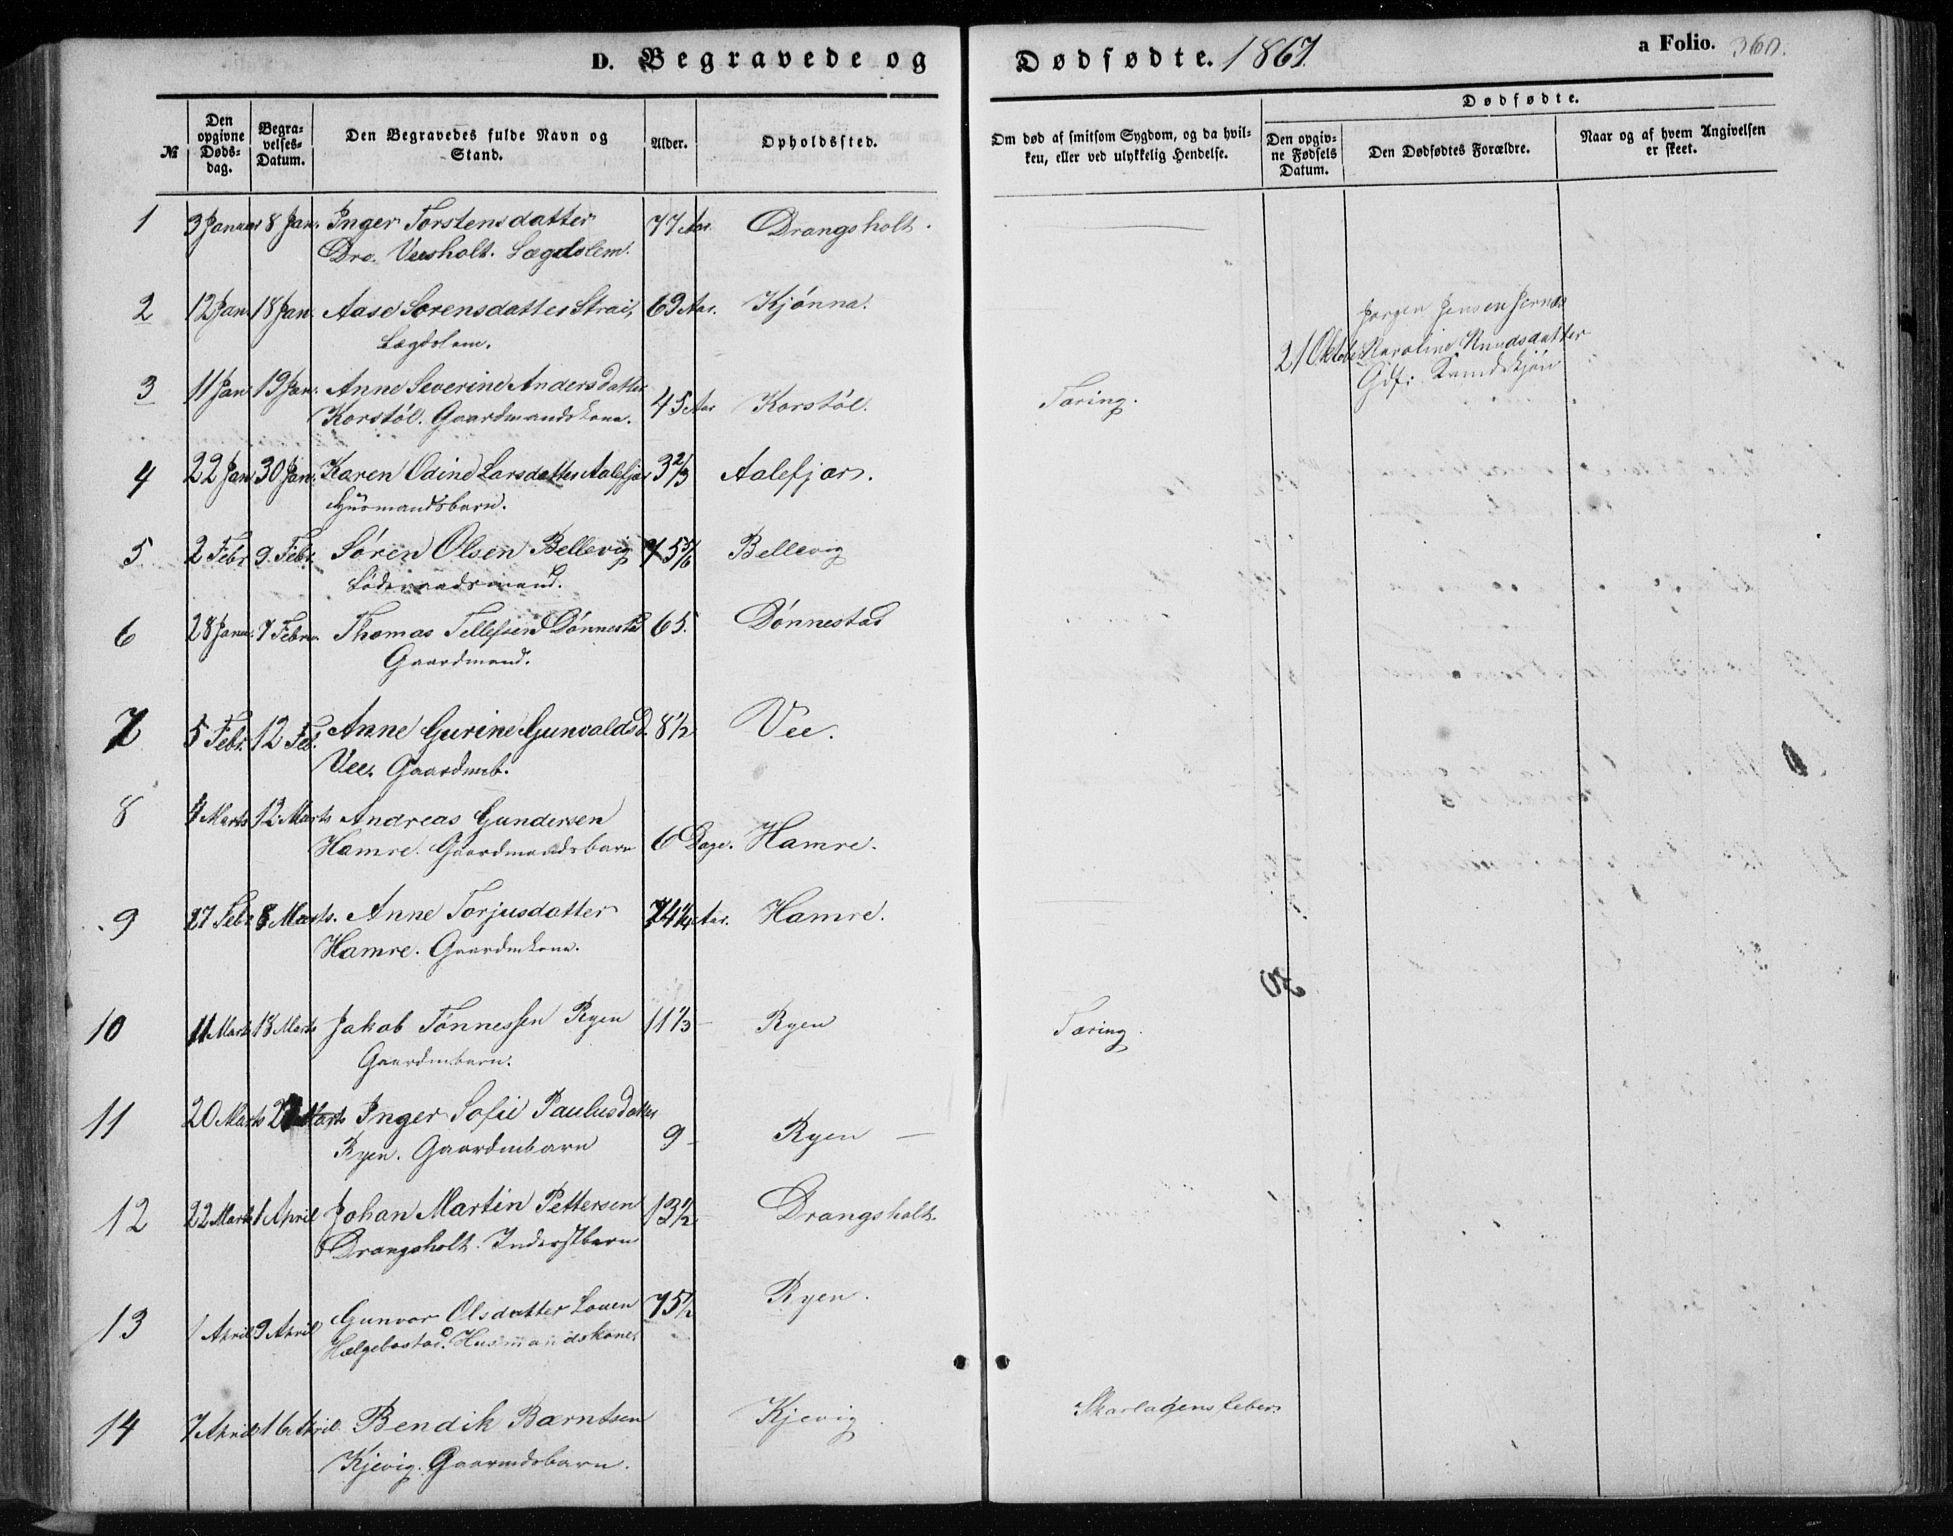 D. Begravede og Dødsødte. 1867 a Folio. 360.
№
Den opgivne Døds-dag.
Begra-velses-Datum.
Den Begravedes fulde Navn og Stand.
Alder.
Opholdssted.
Om død af smitsom Sygdom, og da hvil-
ken, eller ved ulykkelig Hendelse.
Dødfødte.
Den opgiv-ne Fødsels Datum.
Den Dødfødtes Forældre.
Naar og af hvem Angivelsen er skeet.
1 3 Januar 8 Jan. Inger Torstensdatter 77 Aar. Drangsholt.
Dro. Veesholt. Lægdslem.
2 12 Jan 18 Jan. Aase Sørensdatter Strai, 69 Aar. Kjønna.
Lægdslem.
Jørgen Jensen
21 Oktober Karoline Knudsdatter
Gdf:
3 11 Jan 19 Jan. Anne Severine Andersdatter
Korstøl. Gaardmandskone. 45 Aar Korstøl. Tæring.
4 22 Jan 30 Jan. Karen Odine Larsdatter Aalefjær 3 2/3 Aalefjær.
Huusmandsbarn.
5 2 Febr 9. Febr. Søren Olsen Bellevig 75 5/6 Bellevig
Føderaadsmand.
6 28 Januar. 7 Febru. Thomas Tellefsen Dønnestad 65. Dønnestad
Gaardmand.
7 5 Febr. 12 Feb. Anne Gurine Gunvaldsd. 8 1/2 Vee.
Vee. Gaardmb.
8 4 Marts 12 Marts Andreas Gundersen
Hamre. Gaardmandsbarn 6 Dage. Hamre.
9 27 Febr 8 Marts. Anne Torjusdatter 74 1/4 Aar. Hamre.
Hamre. Gaardmkone.
10 11 Marts 18 Marts Jakob Tønnessen Ryen 11 1/3 – Ryen Tæring.
Gaardmbarn.
11 20 Marts 27 Marts Inger Sofie Paulusdatter
Ryen. Gaardmbarn 9 – Ryen –
12 22 Marts 1 April Johan Martin Pettersen 13 1/2 Drangsholt.
Drangsholt. Inderstbarn
13 1 April 9 April Gunvor Olsdatter Louen 75 1/2 Ryen.
Hælgebostad. Husmandskone.
14 7 April 16 April. Bendik Bærntsen Kjevig Skarlagensfeber.
Kjevig. Gaarmdsbarn.